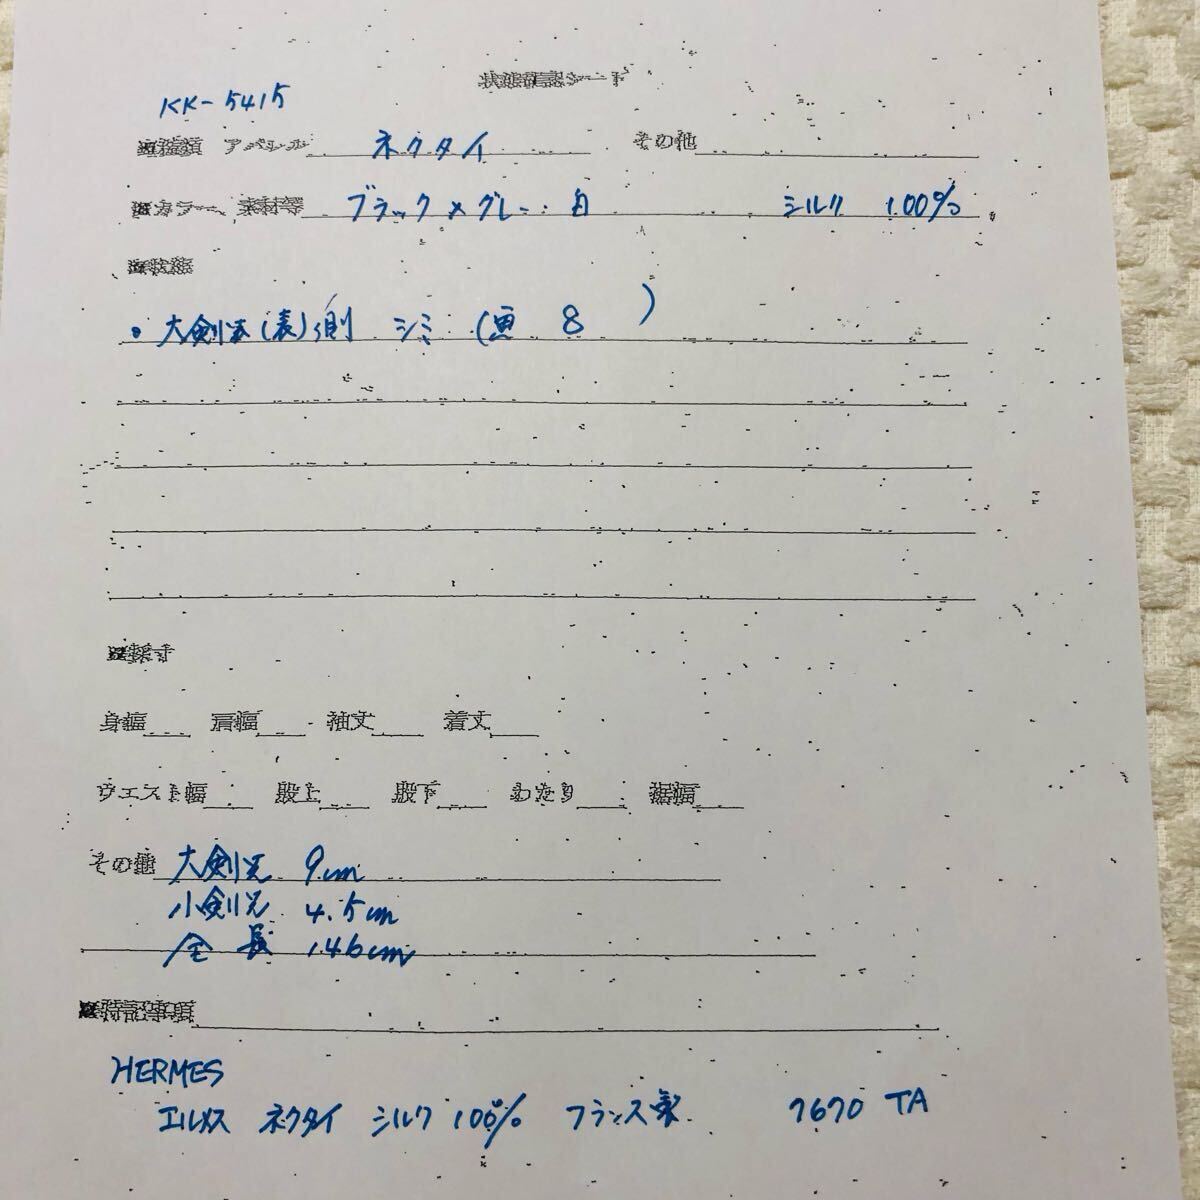 状態確認シート
KK-5415
※種類 アパレル ネクタイ その他
※カラー、素材等 ブラック×グレー・白 シルク 100%
※状態
• 大剣裏(表)側 シミ ( 8 )
※採寸
身幅 肩幅 袖丈 着丈
ウエスト幅 股上 股下 わたり 裾幅
その他 大剣先 9cm
小剣先 4.5cm
全長 146cm
※特記事項
HERMES
エルメス ネクタイ シルク 100% フランス製 7670 TA